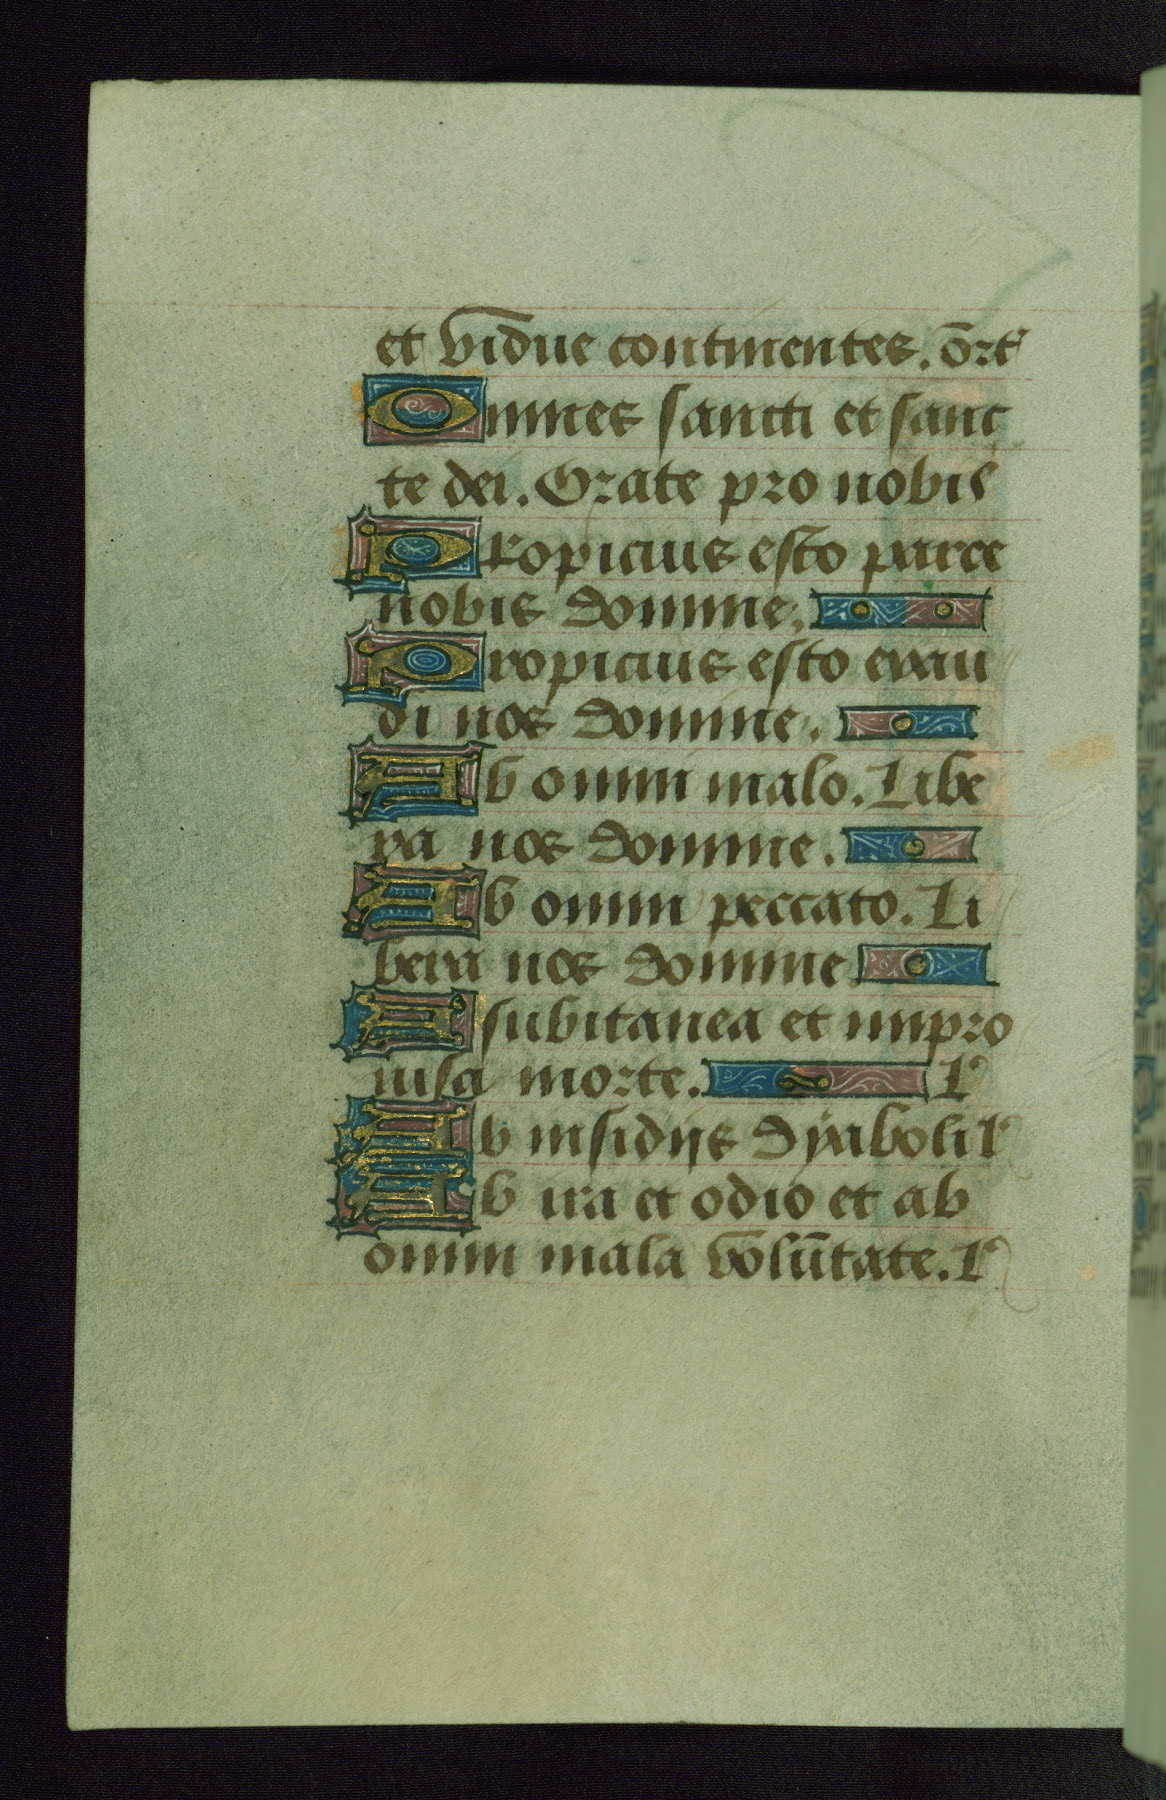 et vidue continentes. ort
Omnes sancti et sanc
te dei. Orate pro nobis
Propicius esto parce
nobis domine.
Propicius esto exau
di nos domine.
Ab omni malo. Libe
ra nos domine.
Ab omni peccato. Li
bera nos domine.
A subitanea et inpro
uisa morte. L
Ab insidijs dyaboli L
Ab ira et odio et ab
omni mala volūtate. L